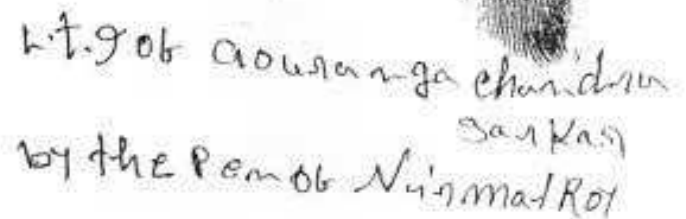 L.T.I of Gouranga Chandra
Sarkar
by the Pen of Nirmal Roy